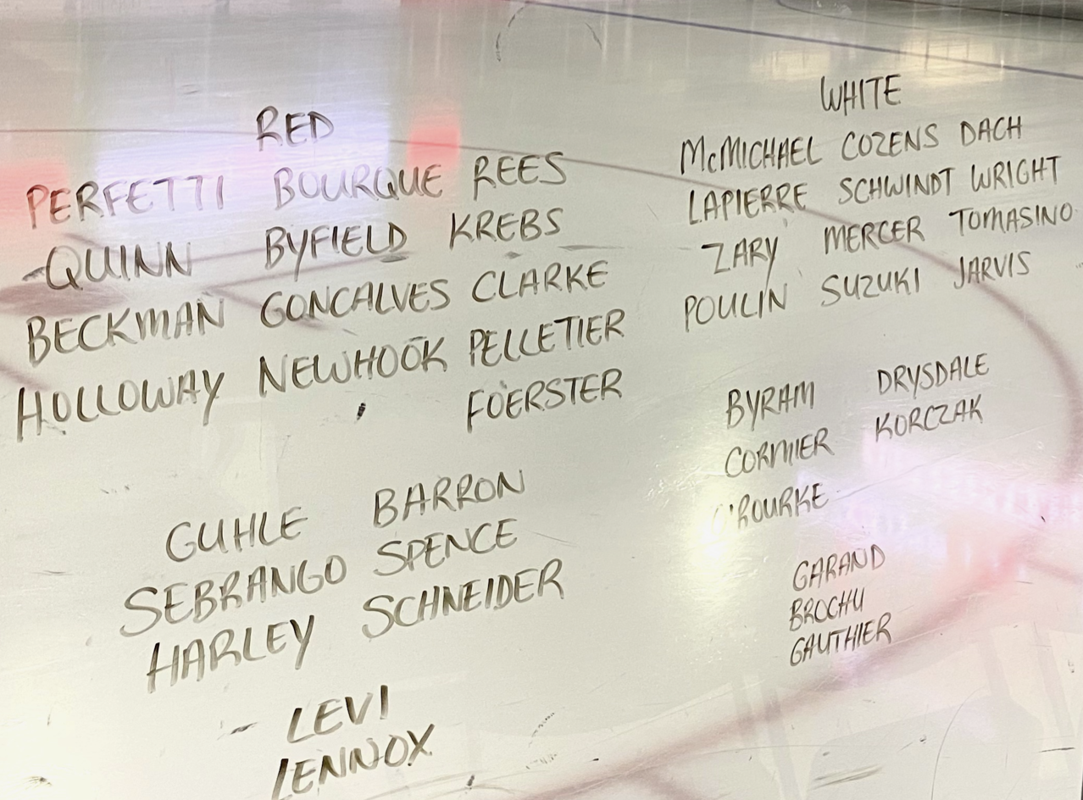 RED
PERFETTI BOURQUE REES
QUINN BYFIELD KREBS
BECKMAN GONCALVES CLARKE
HOLLOWAY NEWHOOK PELLETIER
FOERSTER
GUHLE BARRON
SEBRANGO SPENCE
HARLEY SCHNEIDER
LEVI
LENNOX
WHITE
McMICHAEL COZENS DACH
LAPIERRE SCHWINDT WRIGHT
ZARY MERCER TOMASINO
POULIN SUZUKI JARVIS
BYRAM DRYSDALE
CORMIER KORCZAK
O'ROURKE
GARAND
BROCHU
GAUTHIER